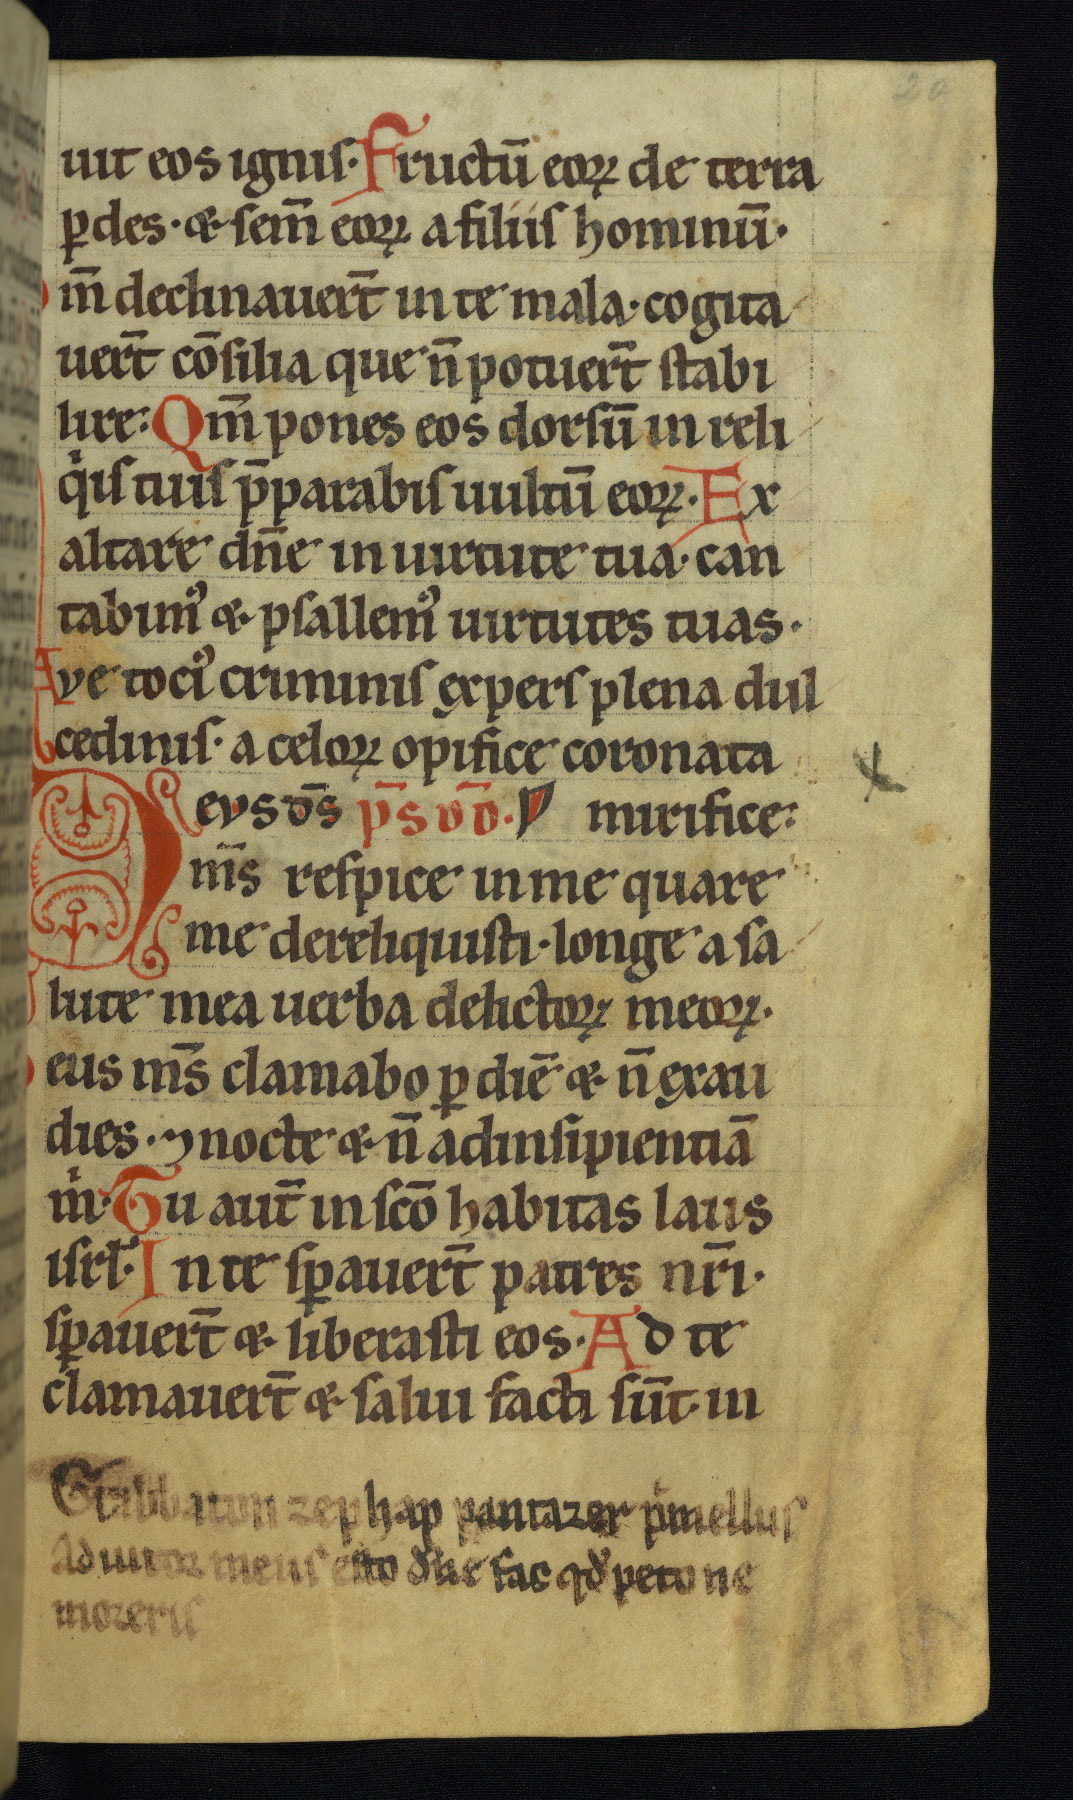 uit eos ignis. Fructū eoꝝ de terra
ꝑdes. & sem̄ eoꝝ a filiis hominū.
m̄ declinauer̄t in te mala. cogita
uer̄t cōsilia que n̄ potuer̄t stabi
lire: Qm̄ pones eos dorsū in reli
qis tuis p̄parabis uultū eoꝝ. Ex
altare dn̄e in uirtute tua. can
tabimꝰ & psallemꝰ uirtutes tuas.
Ave tociꝰ criminis expers plena dul
cedinis. a celoꝝ opifice coronata
Deus ds̄ p̄s dd̄. mirifice:
ms̄ respice in me quare
me dereliquisti. longe a sa
lute mea uerba delictoꝝ meoꝝ.
eus ms̄ clamabo ꝑ diē & n̄ exau
dies. ⁊ nocte & n̄ ad insipientiā
m. Tu aut̄ in scō habitas laus
isrl̄. In te sꝑauer̄t patres nr̄i.
sꝑauer̄t & liberasti eos. Ad te
clamauer̄t & salui facti sūt. in
zephap pantazer pmellus
Adiutor meus esto dn̄e fac qd̄ peto ne
moreris
20